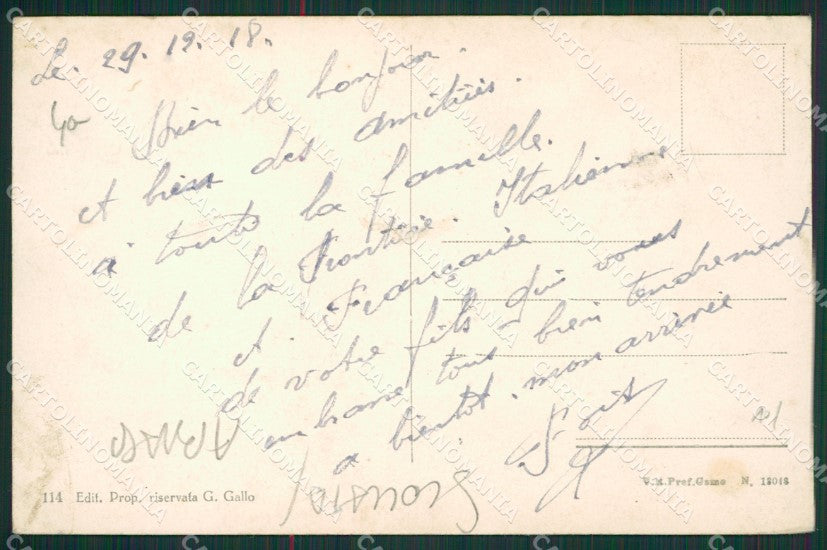 Le. 29.12.18.
Bien le bonjour.
et bien des amitiés.
à toute la famille.
de la Frontière. Italienne
et Française
de votre fils qui vous
embrasse tous bien tendrement
a bientot. mon arrivée
40
114 Edit. Prop. riservata G. Gallo
V.M.Pref.Game N. 18048
CARTOLINOMANIA